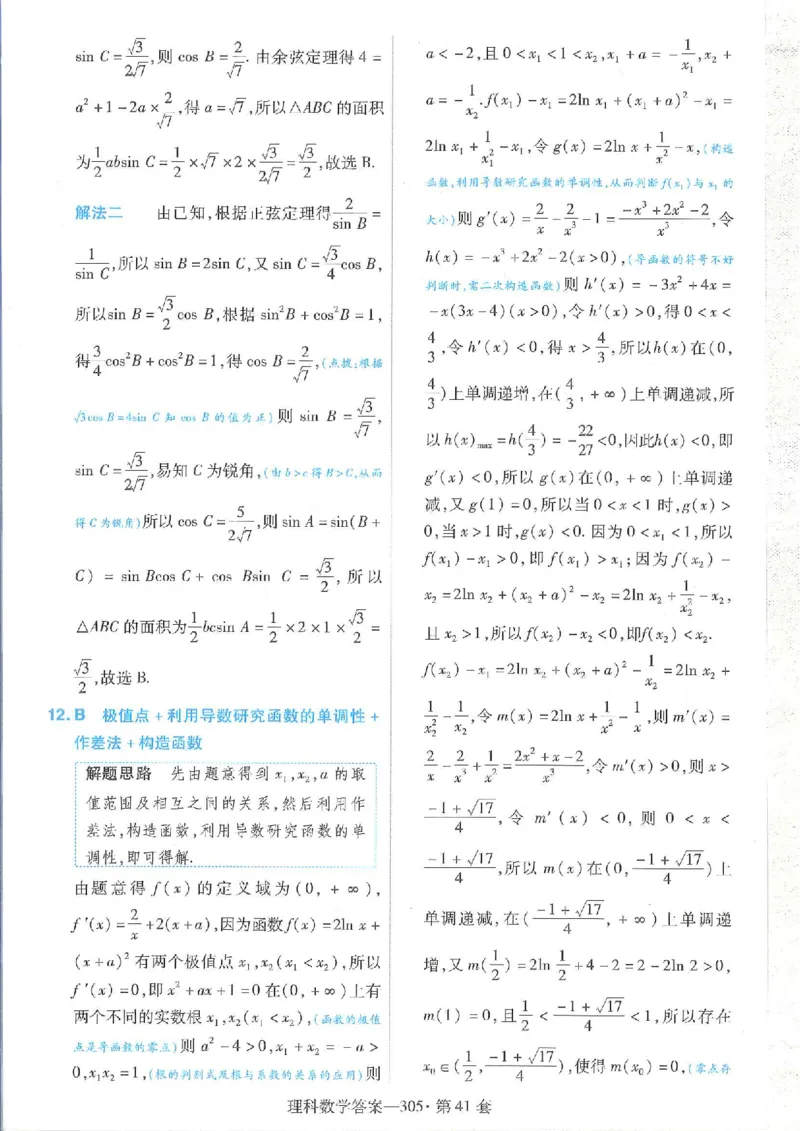 sin C=√3/2√7,则 cos B=2/√7.由余弦定理得4=
a²+1-2a×2/√7,得a=√7,所以△ABC的面积
为1/2absin C=1/2×√7×2×√3/2√7=√3/2,故选B.
解法二 由已知,根据正弦定理得2/sin B=
1/sin C,所以sin B=2sin C,又sin C=√3/4cos B,
所以sin B=√3/2 cos B,根据 sin²B+cos²B=1,
得3/4cos²B+cos²B=1,得cos B=2/√7,(点拨:根据
√3cos B=4sin C 知 cos B 的值为正)则 sin B=√3/√7,
sin C=√3/2√7,易知C为锐角,(由b>c得B>C,从而
得C为锐角)所以cos C=5/2√7,则sin A=sin(B+
C)=sin Bcos C+cos Bsin C=√3/2,所以
△ABC的面积为1/2bcsin A=1/2×2×1×√3/2=
√3/2,故选B.
12.B 极值点+利用导数研究函数的单调性+
作差法+构造函数
解题思路 先由题意得到x₁,x₂,a的取
值范围及相互之间的关系,然后利用作
差法,构造函数,利用导数研究函数的单
调性,即可得解.
由题意得f(x)的定义域为(0,+∞),
f′(x)=2/x+2(x+a),因为函数f(x)=2ln x+
(x+a)²有两个极值点x₁,x₂(x₁<x₂),所以
f′(x)=0,即x²+ax+1=0在(0,+∞)上有
两个不同的实数根x₁,x₂(x₁<x₂),(函数的极值
点是导函数的零点)则a²-4>0,x₁+x₂=-a>
0,x₁x₂=1,(根的判别式及根与系数的关系的应用)则
a<-2,且0<x₁<1<x₂,x₁+a=-1/x₁,x₂+
a=-1/x₂.f(x₁)-x₁=2ln x₁+(x₁+a)²-x₁=
2ln x₁+1/x₁²-x₁,令g(x)=2ln x+1/x²-x,(构造
函数,利用导数研究函数的单调性,从而判断f(x₁)与x₁的
大小)则g′(x)=2/x-2/x³-1=(-x³+2x²-2)/x³,令
h(x)=-x³+2x²-2(x>0),(导函数的符号不好
判断时,需二次构造函数)则h′(x)=-3x²+4x=
-x(3x-4)(x>0),令h′(x)>0,得0<x<
4/3,令h′(x)<0,得x>4/3,所以h(x)在(0,
4/3)上单调递增,在(4/3,+∞)上单调递减,所
以h(x)max=h(4/3)=-22/27<0,因此h(x)<0,即
g′(x)<0,所以g(x)在(0,+∞)上单调递
减,又g(1)=0,所以当0<x<1时,g(x)>
0,当x>1时,g(x)<0.因为0<x₁<1,所以
f(x₁)-x₁>0,即f(x₁)>x₁;因为f(x₂)-
x₂=2ln x₂+(x₂+a)²-x₂=2ln x₂+1/x₂²-x₂,
且x₂>1,所以f(x₂)-x₂<0,即f(x₂)<x₂.
f(x₂)-x₁=2ln x₂+(x₂+a)²-1/x₂=2ln x₂+
1/x₂²-1/x₂,令m(x)=2ln x+1/x²-1/x,则m′(x)=
2/x-2/x³+1/x²=(2x²+x-2)/x³,令m′(x)>0,则x>
(-1+√17)/4,令m′(x)<0,则0<x<
(-1+√17)/4,所以m(x)在(0,(-1+√17)/4)上
单调递减,在((-1+√17)/4,+∞)上单调递
增,又m(1/2)=2ln 1/2+4-2=2-2ln 2>0,
m(1)=0,且1/2<(-1+√17)/4<1,所以存在
x₀∈(1/2,(-1+√17)/4),使得m(x₀)=0,(零点存
理科数学答案—305·第41套